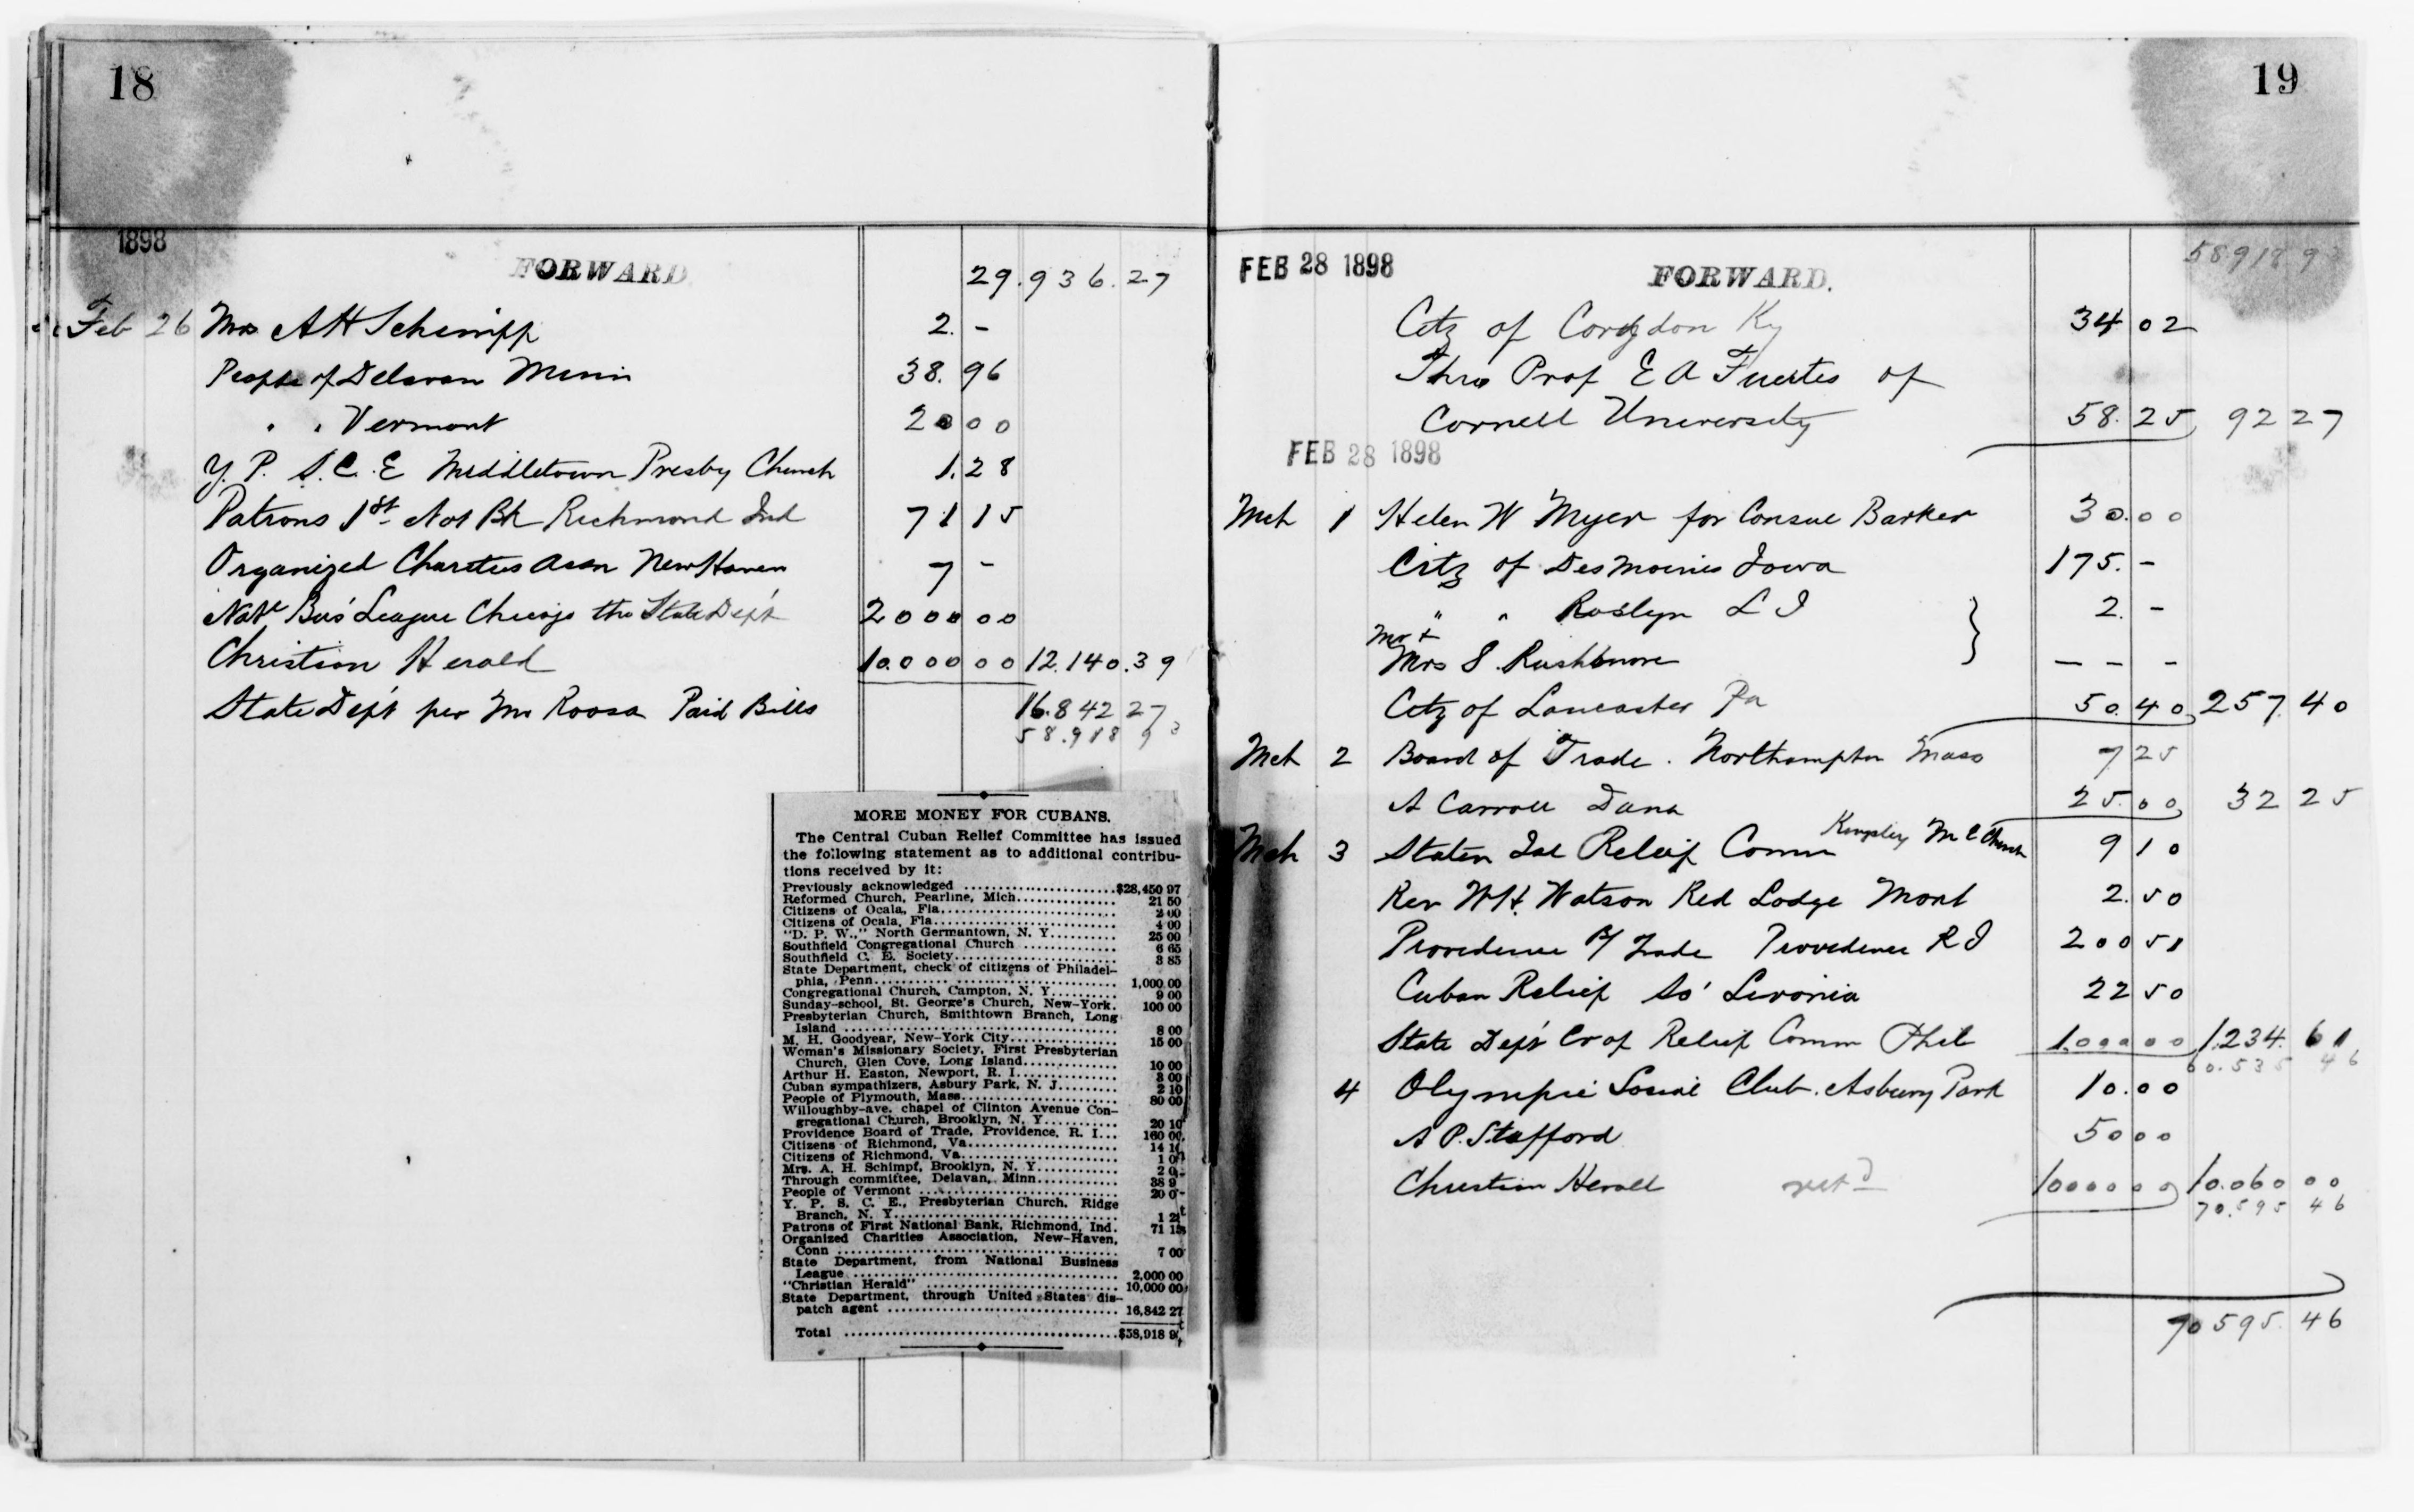 18
1898
FORWARD 29.936.27
Feb 26 Mrs A H Schimpf 2. -
People of Delavan Minn 38.96
" " Vermont 20 00
Y. P. S. C. E Middletown Presby Church 1.28
Patrons 1st Nat Bk Richmond Ind 71 15
Organized Charities Assn New Haven 7 -
Natl Bus' League Chicago thro State Dept 2000 00
Christian Herald 10.000 00 12.140.39
State Dept per Mr Roosa Paid Bills 16.842 27
58.918 93
MORE MONEY FOR CUBANS.
The Central Cuban Relief Committee has issued
the following statement as to additional contribu-
tions received by it:
Previously acknowledged $28,450 97
Reformed Church, Pearline, Mich. 21 50
Citizens of Ocala, Fla. 2 00
Citizens of Ocala, Fla. 4 00
"D. P. W.," North Germantown, N. Y. 25 00
Southfield Congregational Church 6 65
Southfield C. E. Society. 3 85
State Department, check of citizens of Philadel-
phia, Penn. 1,000 00
Congregational Church, Campton, N. Y. 9 00
Sunday-school, St. George's Church, New-York. 100 00
Presbyterian Church, Smithtown Branch, Long
Island 8 00
M. H. Goodyear, New-York City. 15 00
Woman's Missionary Society, First Presbyterian
Church, Glen Cove, Long Island. 10 00
Arthur H. Easton, Newport, R. I. 3 00
Cuban sympathizers, Asbury Park, N. J. 2 10
People of Plymouth, Mass. 80 00
Willoughby-ave. chapel of Clinton Avenue Con-
gregational Church, Brooklyn, N. Y. 20 10
Providence Board of Trade, Providence, R. I. 160 00
Citizens of Richmond, Va. 14 1
Citizens of Richmond, Va. 1 0
Mrs. A. H. Schimpf, Brooklyn, N. Y. 2 0
Through committee, Delavan, Minn. 38 9
People of Vermont 20 0
Y. P. S. C. E., Presbyterian Church, Ridge
Branch, N. Y. 1 2
Patrons of First National Bank, Richmond, Ind. 71 1
Organized Charities Association, New-Haven,
Conn 7 00
State Department, from National Business
League 2,000 00
"Christian Herald" 10,000 00
State Department, through United States dis-
patch agent 16,842 27
Total $58,918 9
19
58918 93
FEB 28 1898 FORWARD.
Citz of Corydon Ky 34 02
Thro Prof E A Fuertes of
Cornell University 58.25 92 27
FEB 28 1898
Mch 1 Helen W Myer for Consul Barker 30.00
Citz of DesMoines Iowa 175. -
" " Roslyn L I 2. -
Mr &
Mrs S. Rushmore — — -
Citz of Lancaster Pa 50.40 257.40
Mch 2 Board of Trade. Northampton Mass 7 25
A Carroll Dana 25.00 32 25
Mch 3 Staten Isl Relief Comm Kingsley M E Church 9 10
Rev W H Watson Red Lodge Mont 2.50
Providence B/ Trade Providence R I 200 51
Cuban Relief So' Livonia 22 50
State Dept Cr of Relief Comm Phil 1.000 00 1.234.61
60.535 46
4 Olympic Social Club. Asbury Park 10.00
A P. Stafford 50 00
Christian Herald 10000 00 10.060 00
70.595 46
70595.46